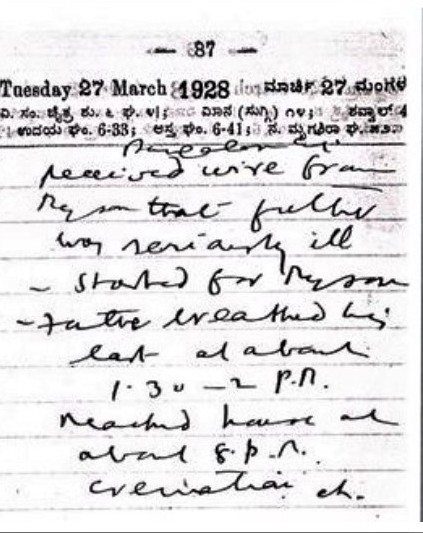 — 87 —
Tuesday 27 March 1928 ಮಾರ್ಚಿ 27 ಮಂಗಳ
ವಿ. ಸಂ. ಚೈತ್ರ ಶು. ೬ ಘ. ೪|; ಮೀನ (ಸುಗ್ಗಿ) ೧೪; ಶವ್ವಾಲ್ 4
ಉದಯ ಘಂ. 6-33; ಅಸ್ತ ಘಂ. 6-41; ನ. ಮೃಗಶಿರಾ ಘ.
received wire from
Mysore that father
was seriously ill
- Started for Mysore
- Father breathed his
last at about
1.30 - 2 P.M.
Reached house at
about 8.p.m.
cremation etc.